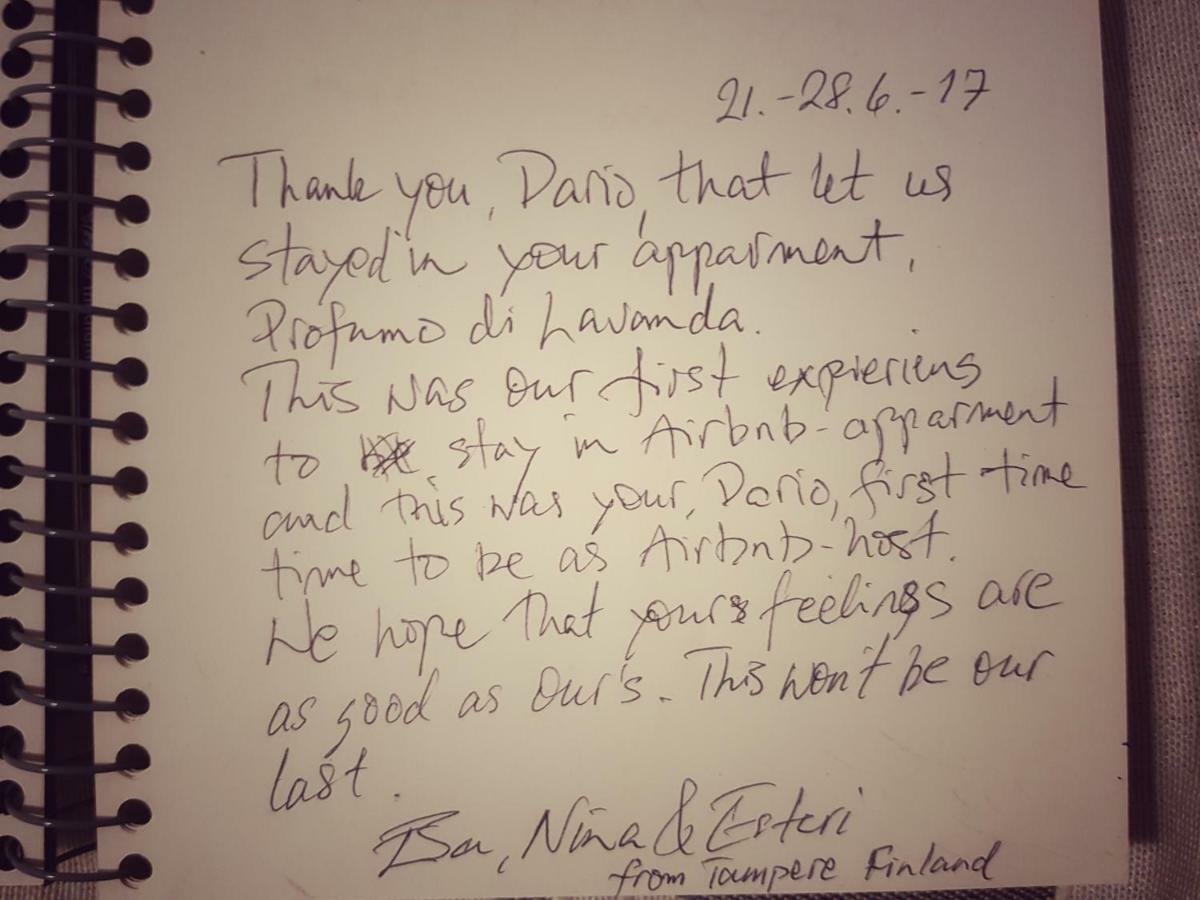 21.-28.6.-17
Thank you, Dario, that let us
stayed in your apparment,
Profumo di Lavanda.
This was our first expieriens
to stay in Airbnb-apparment
and this was your, Dario, first time
time to be as Airbnb-host.
We hope that your feelings are
as good as Our's. This won't be our
last.
Nina & Esteri
from Tampere Finland